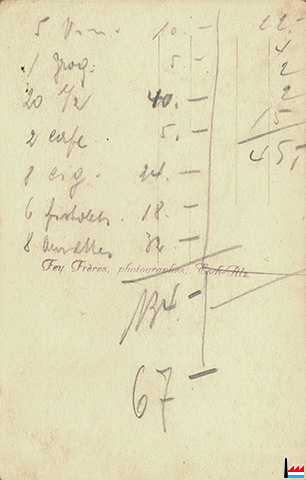 5 Vin. 10. —
1 grog. 5 —
20 1/2 40. —
2 cafe 5. —
8 cig. 24 —
6 pistolets. 18. —
8 32 —
Fey Frères, photographes, Esch-Alz.
134. —
67 —
22.-
4
2
2
15
45,-